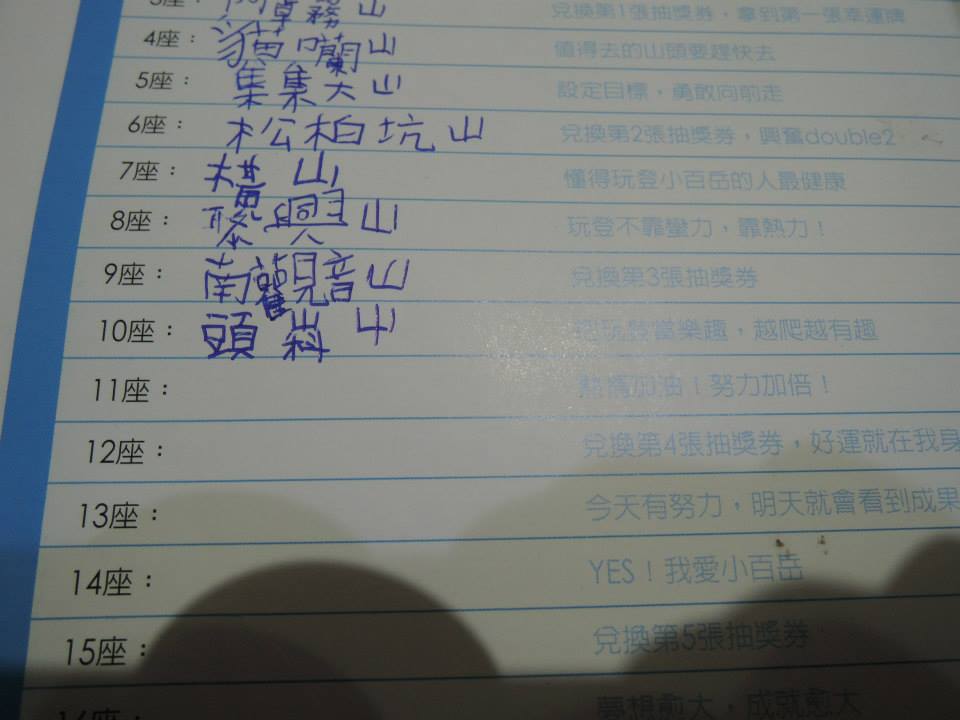 3座：罩霧山 兌換第1張抽獎券，拿到第一張幸運牌
4座：貓囒山 值得去的山頭要趕快去
5座：集集大山 設定目標，勇敢向前走
6座：松柏坑山 兌換第2張抽獎券，興奮double2
7座：橫山 懂得玩登小百岳的人最健康
8座：聚興山 玩登不靠蠻力，靠熱力！
9座：南觀音山 兌換第3張抽獎券
10座：頭嵙山 把玩登當樂趣，越爬越有趣
11座： 熱情加油！努力加倍！
12座： 兌換第4張抽獎券，好運就在我身
13座： 今天有努力，明天就會看到成果
14座： YES！我愛小百岳
15座： 兌換第5張抽獎券
16座： 夢想愈大，成就愈大